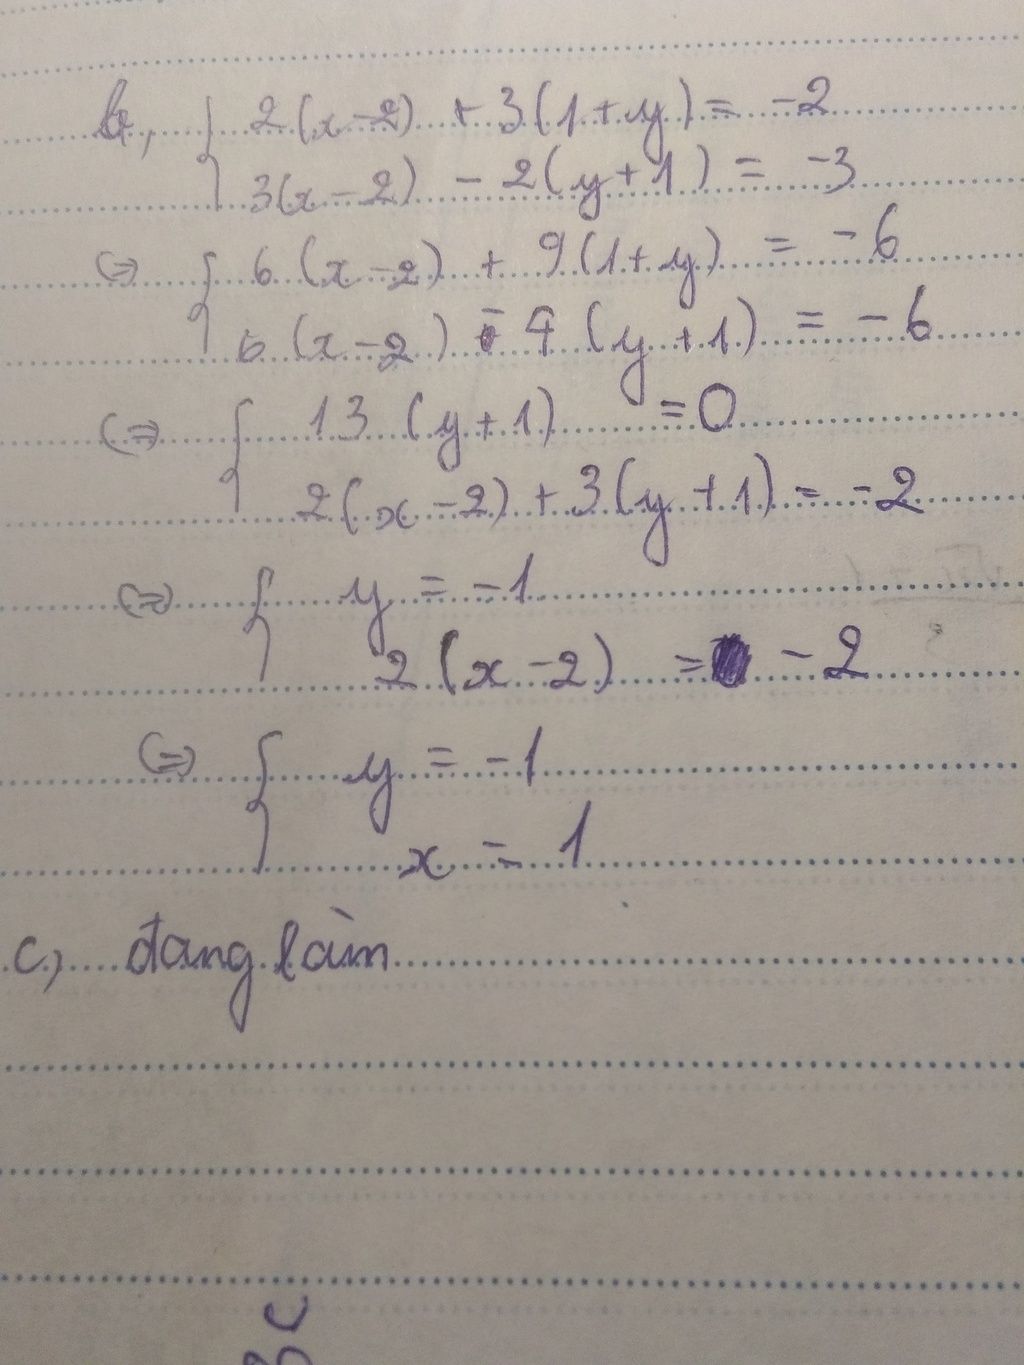 b, { 2(x-2) + 3(1+y) = -2
3(x-2) - 2(y+1) = -3
(=) { 6(x-2) + 9(1+y) = -6
6(x-2) - 4(y+1) = -6
(=) { 13(y+1) = 0
2(x-2) + 3(y+1) = -2
(=) { y = -1
2(x-2) = -2
(=) { y = -1
x = 1
c, đang làm